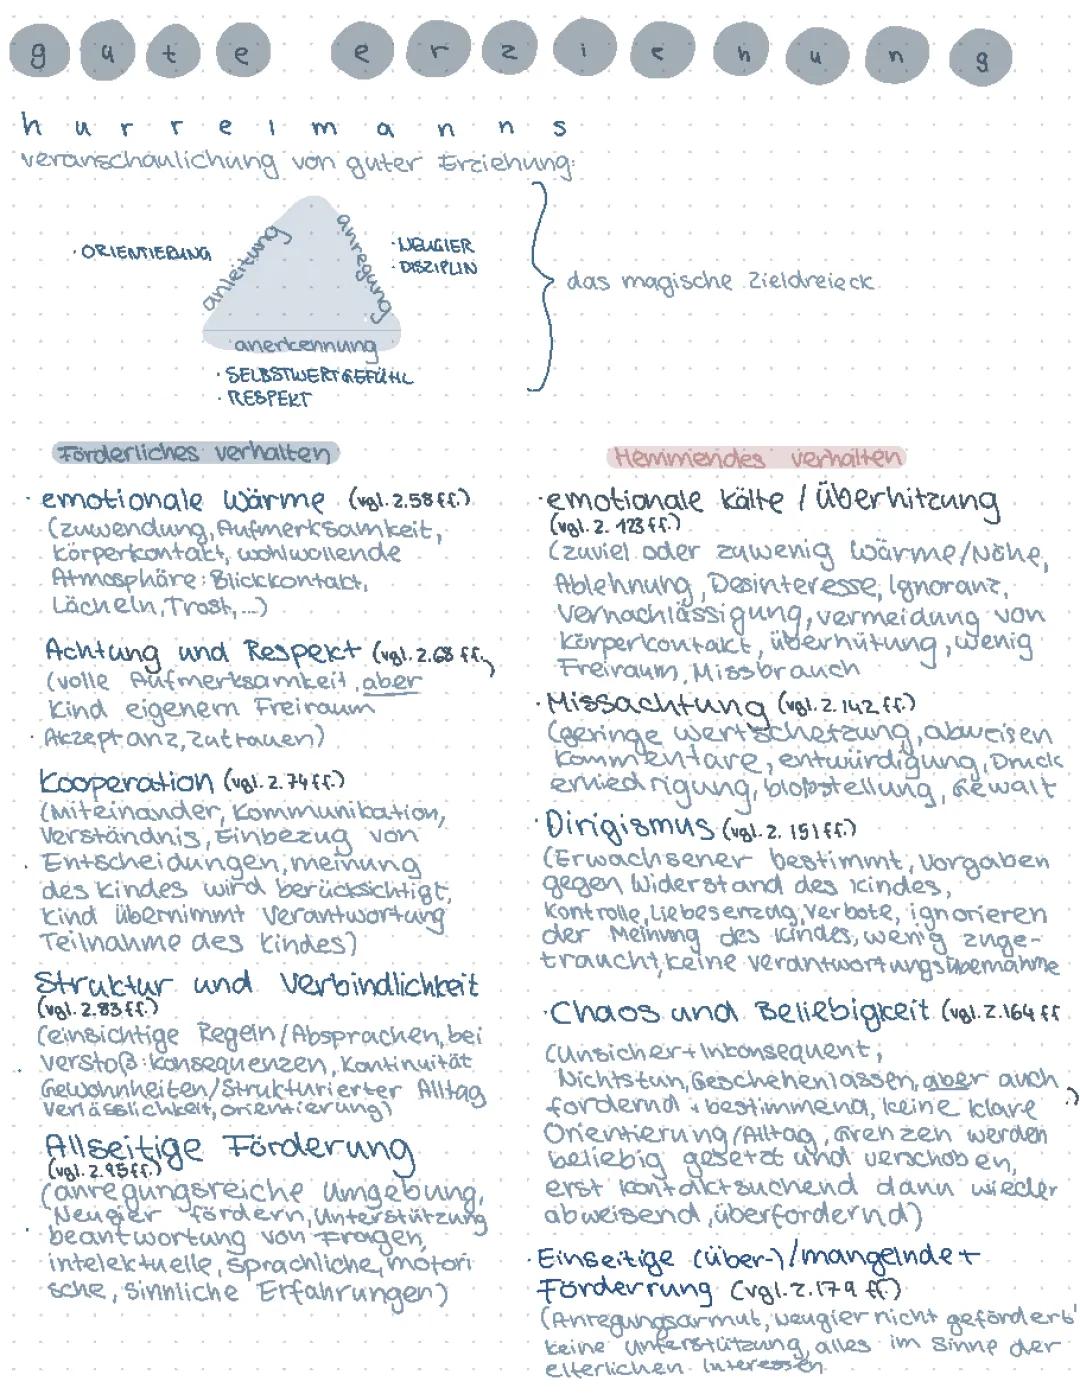 gute erziehung
hurrelmanns
veranschaulichung von guter Erziehung:
· ORIENTIERUNG
anleitung
anregung
· NEUGIER
· DISZIPLIN
das magische Zieldreieck
anerkennung
· SELBSTWERTGEFÜHL
· RESPEKT
Förderliches verhalten
· emotionale Wärme (vgl. Z.58ff.)
(zuwendung, Aufmerksamkeit,
körperkontakt, wohlwollende
Atmosphäre: Blickkontakt,
Lächeln, Trost,...)
Achtung und Respekt (vgl. Z.68 ff.)
(volle Aufmerksamkeit, aber
Kind eigenem Freiraum
· Akzeptanz, zutrauen)
Kooperation (vgl. Z.74ff.)
(Miteinander, Kommunikation,
Verständnis, Einbezug von
· Entscheidungen, meinung
des Kindes wird berücksichtigt,
Kind übernimmt Verantwortung
Teilnahme des Kindes)
Struktur und Verbindlichkeit
(vgl. Z.83ff.)
(einsichtige Regeln/Absprachen, bei
· verstoß: Konsequenzen, Kontinuität
Gewohnheiten/Strukturierter Alltag
Verlässlichkeit, orientierung)
Allseitige Förderung
(vgl. Z.95ff.)
(anregungsreiche Umgebung,
Neugier fördern, Unterstützung
· beantwortung von Fragen,
intelektuelle, sprachliche, motori
sche, sinnliche Erfahrungen)
Hemmendes verhalten
· emotionale Kälte / Überhitzung
(vgl. Z. 123ff.)
(zuviel oder zuwenig Wärme/Nähe,
Ablehnung, Desinteresse, Ignoranz,
Vernachlässigung, vermeidung von
Körperkontakt, überhütung, wenig
Freiraum, Missbrauch
· Missachtung (vgl. Z. 142 ff.)
(geringe wertschetzung, abweisen
Kommentare, entwürdigung, Druck
erniedrigung, bloßstellung, Gewalt
· Dirigismus (vgl. Z. 151ff.)
(Erwachsener bestimmt, Vorgaben
gegen Widerstand des Kindes,
Kontrolle, Liebesenzug, Verbote, ignorieren
der Meinung des Kindes, wenig zuge-
traucht, keine verantwortungsübernahme
· Chaos und Beliebigkeit (vgl. Z.164 ff
(Unsicher + Inkonsequent,
Nichtstun, Geschehenlassen, aber auch
fordernd + bestimmend, keine klare
Orientierung/Alltag, Grenzen werden
beliebig gesetzt und verschoben,
erst kontaktsuchend dann wieder
abweisend, überfordernd)
· Einseitige (über-)/mangelnde +
Förderrung (vgl. Z.179 ff.)
(Anregungsarmut, Neugier nicht gefördert
keine Unterstützung, alles im Sinne der
elterlichen Interessen